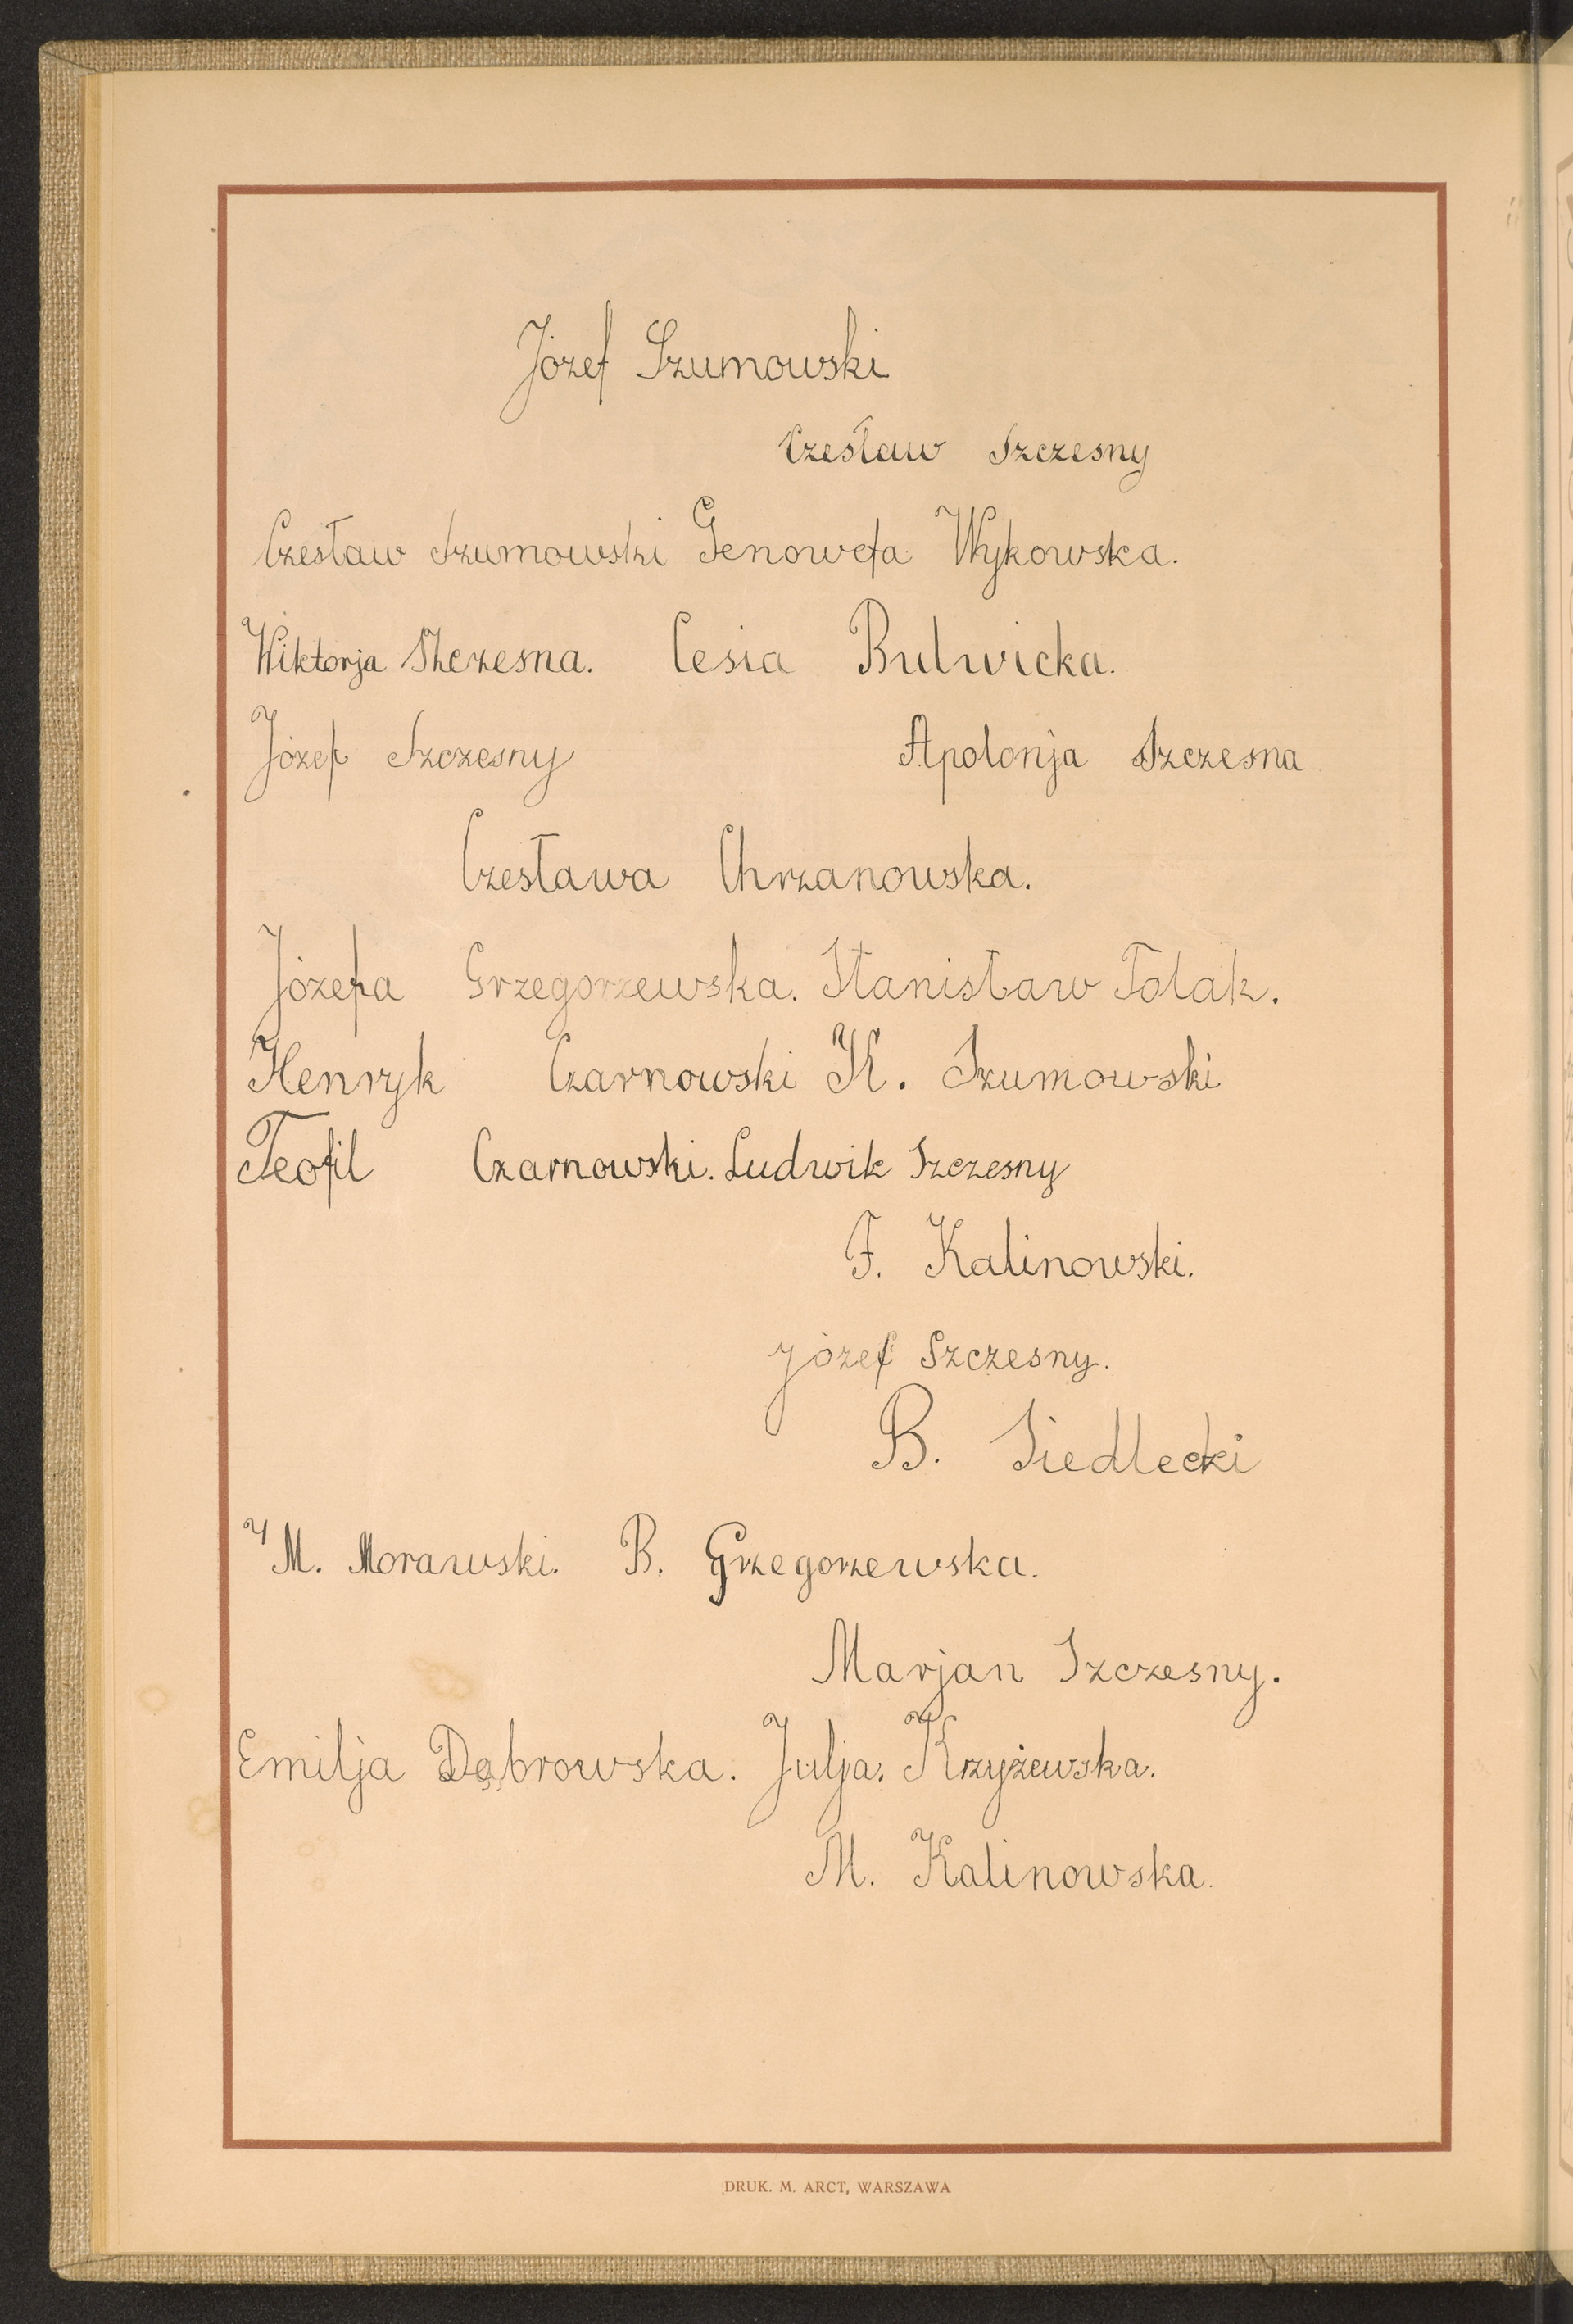 Józef Szumowski
Czesław Szczesny
Czesław Szumowski Genowefa Wykowska.
Wiktorja Szczesna. Cesia Bulwicka.
Józef Szczesny Apolonja Szczesna
Czesława Chrzanowska.
Józefa Grzegorzewska. Stanisław Polak.
Henryk Czarnowski K. Szumowski
Teofil Czarnowski. Ludwik Szczesny
F. Kalinowski.
Józef Szczesny.
B. Siedlecki
M. Morawski. B. Grzegorzewska.
Marjan Szczesny.
Emilja Dąbrowska. Julja. Krzyżewska.
M. Kalinowska.
DRUK. M. ARCT, WARSZAWA